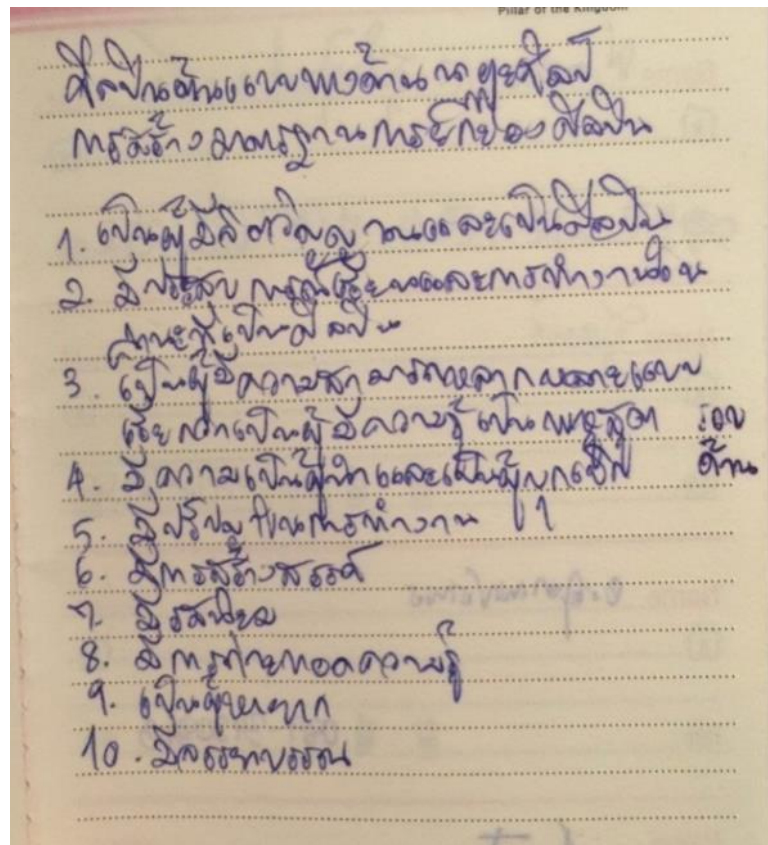 Pillar of the Kingdom
ศิลปินต้นแบบทางด้านนาฏยศิลป์
การสร้างมาตรฐานการยกย่องศิลปิน
1. เป็นผู้มีจิตวิญญาณและเป็นศิลปิน
2. มีประสบการณ์เรียนและการทำงานใน
ฐานะที่เป็นศิลปิน
3. เป็นผู้มีความสามารถหลากหลายแบบ
เรียกว่าเป็นผู้มีความรู้เป็นพหูสูตร รอบ
4. มีความเป็นผู้นำและเป็นผู้บุกเบิก ด้าน
5. มีปรัชญาในการทำงาน
6. มีการสร้างสรรค์
7. มีรสนิยม
8. มีการถ่ายทอดความรู้
9. เป็นผู้หายาก
10. มีจรรยาบรรณ